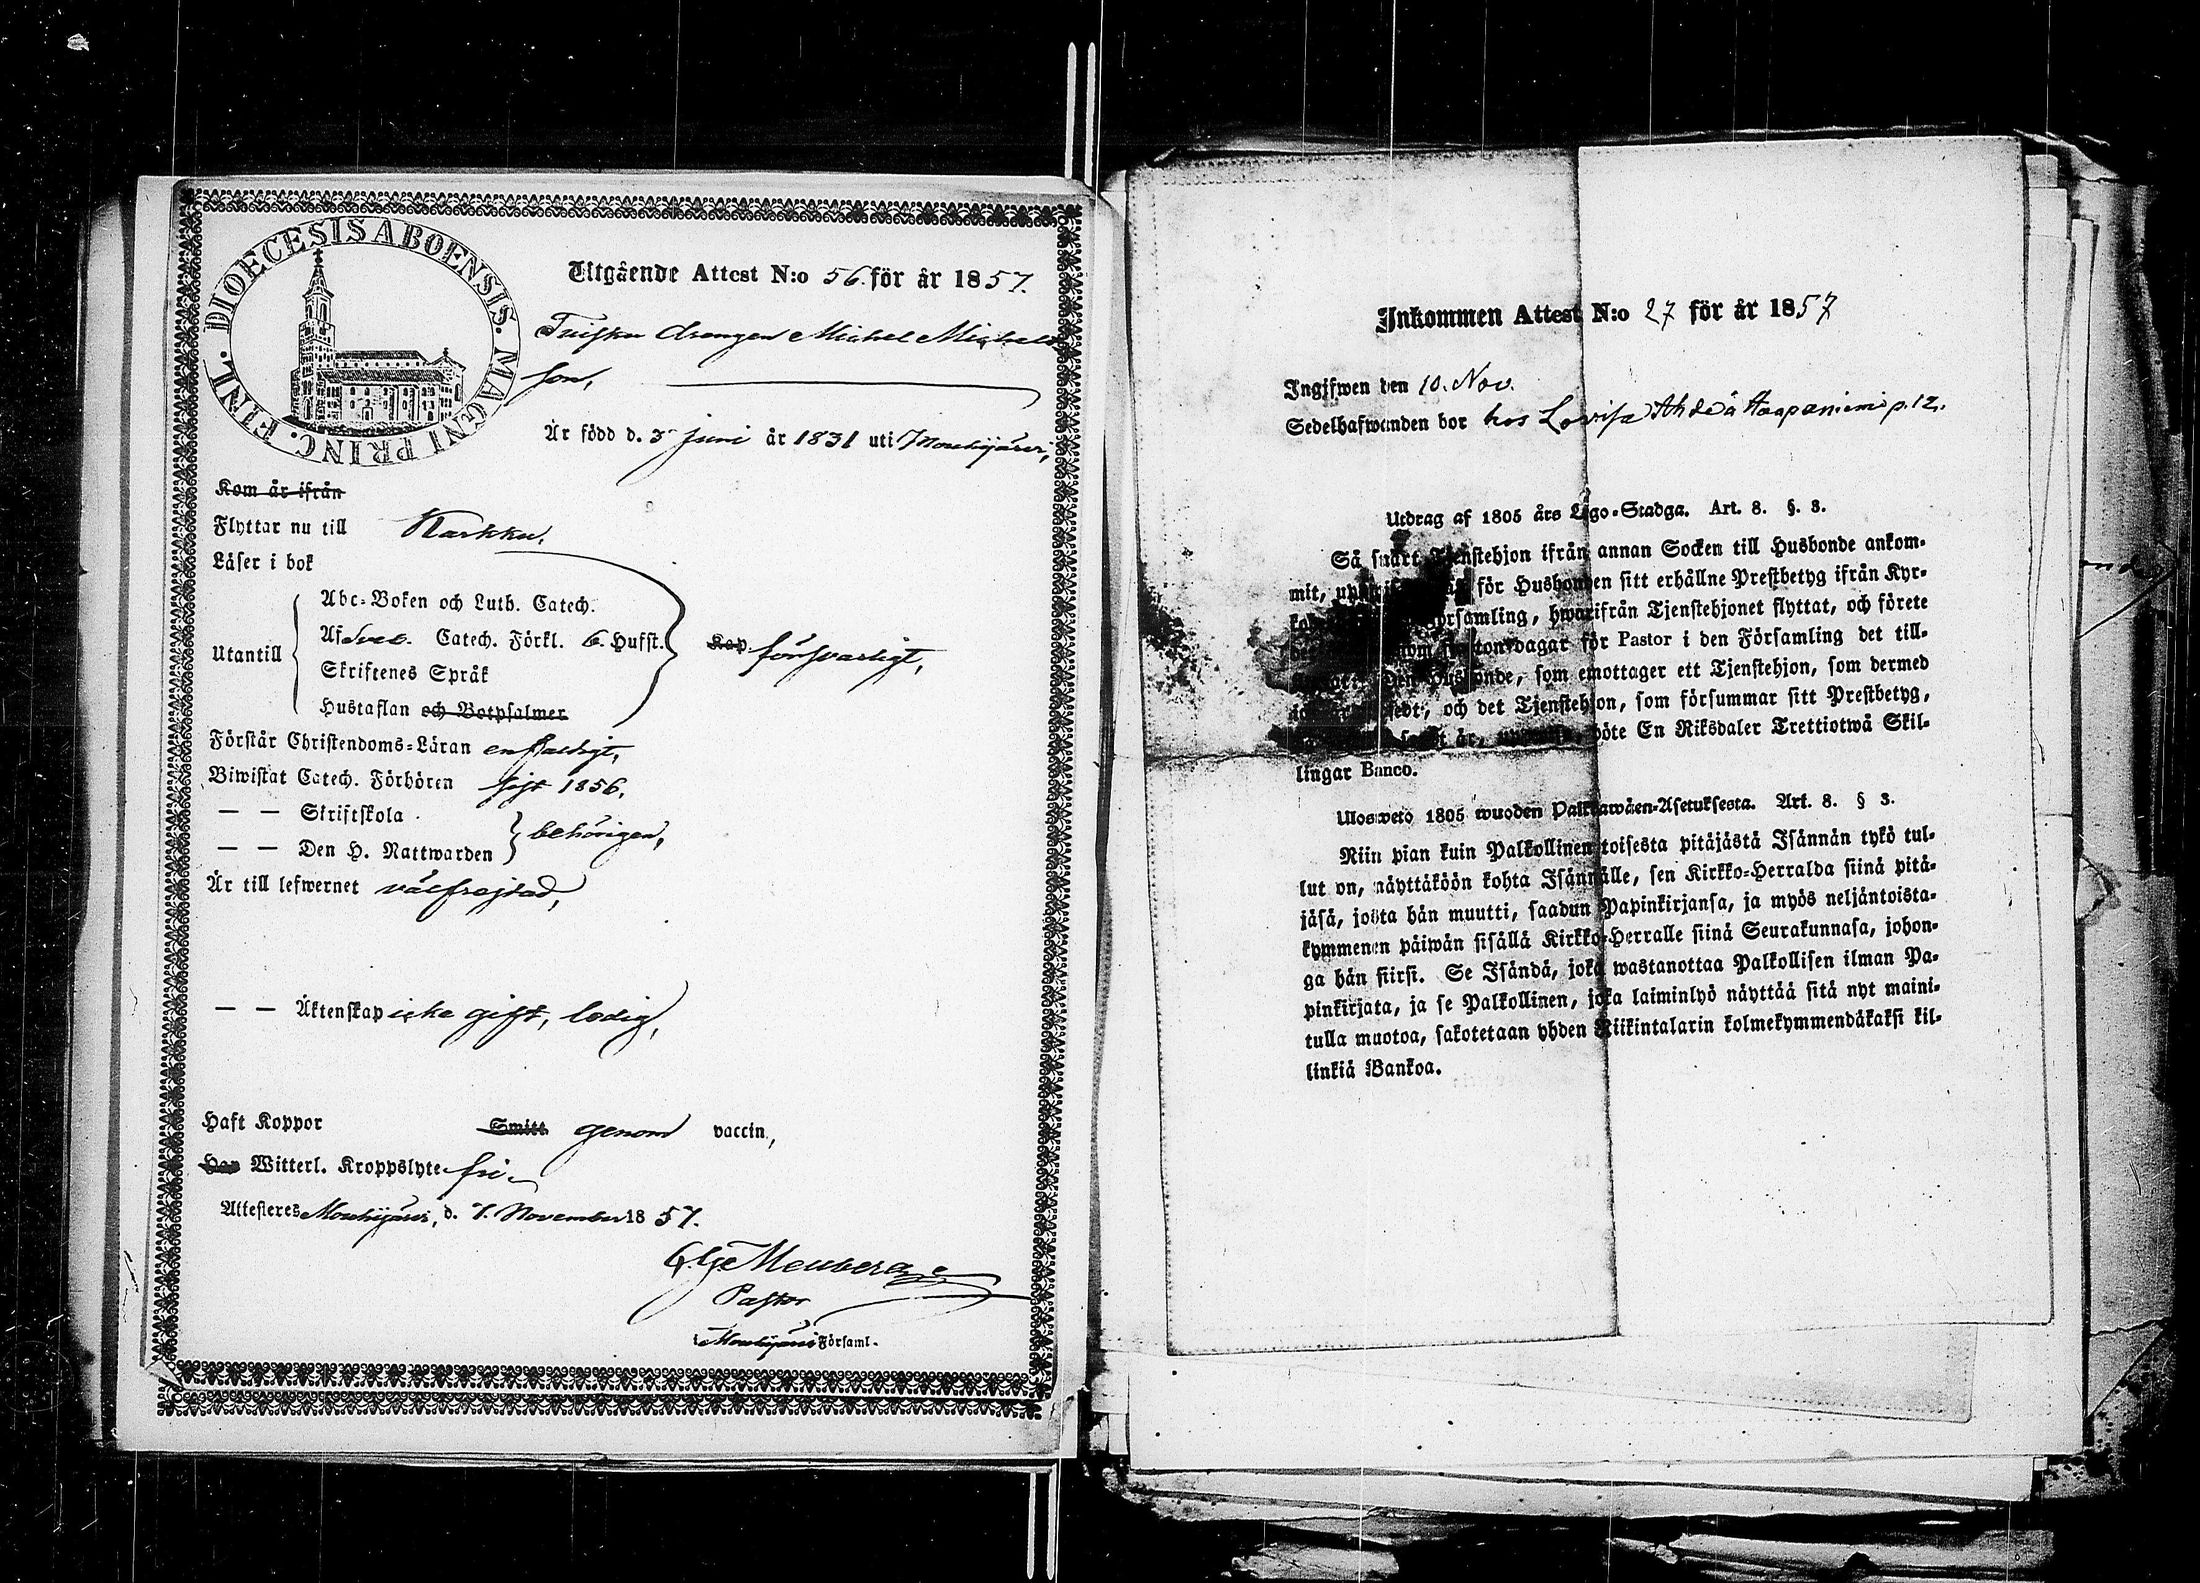 DIOECESIS ABOENSIS. MAGNI PRINC. FINL.
Utgående Attest N:o 56. för år 1857.
drengen Michel Michels
son,
Är född d. 3 Juni år 1831 uti Mouhijärvi,
Kom år ifrån
Flyttar nu till Karkku.
Läser i bok
Utantill
Abc-Boken och Luth. Catech.
Af Sveb. Catech. Förkl. 6. Hufst.
Skriftenes Språk
Hustaflan och Botpsalmer
försvarligt,
Förstår Christendoms-Läran enfaldigt,
Biwistat Catech. Förhören sist 1856.
— — Skriftskola
— — Den H. Nattwarden
behörigen,
Är till lefwernet välfrejdad,
— — Äktenskap icke gift, ledig,
Haft Koppor Smitt genom vaccin,
Har Witterl. Kroppslyte fri
Attesteres Mouhijärvi, d. 7. November 1857.
Pastor
i Mouhijärvi Församl.
Inkommen Attest N:o 27 för år 1857
Ingifwen den 10. Nov.
Sedelhafwanden bor hos Lovisa Ahde å Haapaniemi p. 12.
Utdrag af 1805 års Lego-Stadga. Art. 8. §. 3.
Så snart Tjenstehjon ifrån annan Socken till Husbonde ankom-
mit, för Husbonden sitt erhållne Prestbetyg ifrån Kyr-
Församling, hwarifrån Tjenstehjonet flyttat, och förete
dagar för Pastor i den Församling det till-
Den Husbonde, som emottager ett Tjenstehjon, som dermed
och det Tjenstehjon, som försummar sitt Prestbetyg,
böte En Riksdaler Trettiotwå Skil-
lingar Banco.
Ulosweto 1805 wuoden Palkkawäen-Asetuksesta. Art. 8. § 3.
Niin pian kuin Palkollinen toisesta pitäjästä Isännän tykö tul-
lut on, näyttäköön kohta Isännälle, sen Kirkko-Herralda siinä pitä-
jäsä, josta hän muutti, saadun Papinkirjansa, ja myös neljäntoista-
kymmenen päiwän sisällä Kirkko-Herralle siinä Seurakunnasa, johon-
ga hän siirsi. Se Isändä, joka wastanottaa Palkollisen ilman Pa-
pinkirjata, ja se Palkollinen, joka laiminlyö näyttää sitä nyt maini-
tulla muotoa, sakotetaan yhden Riikintalarin kolmekymmendäkaksi kil-
linkiä Bankoa.